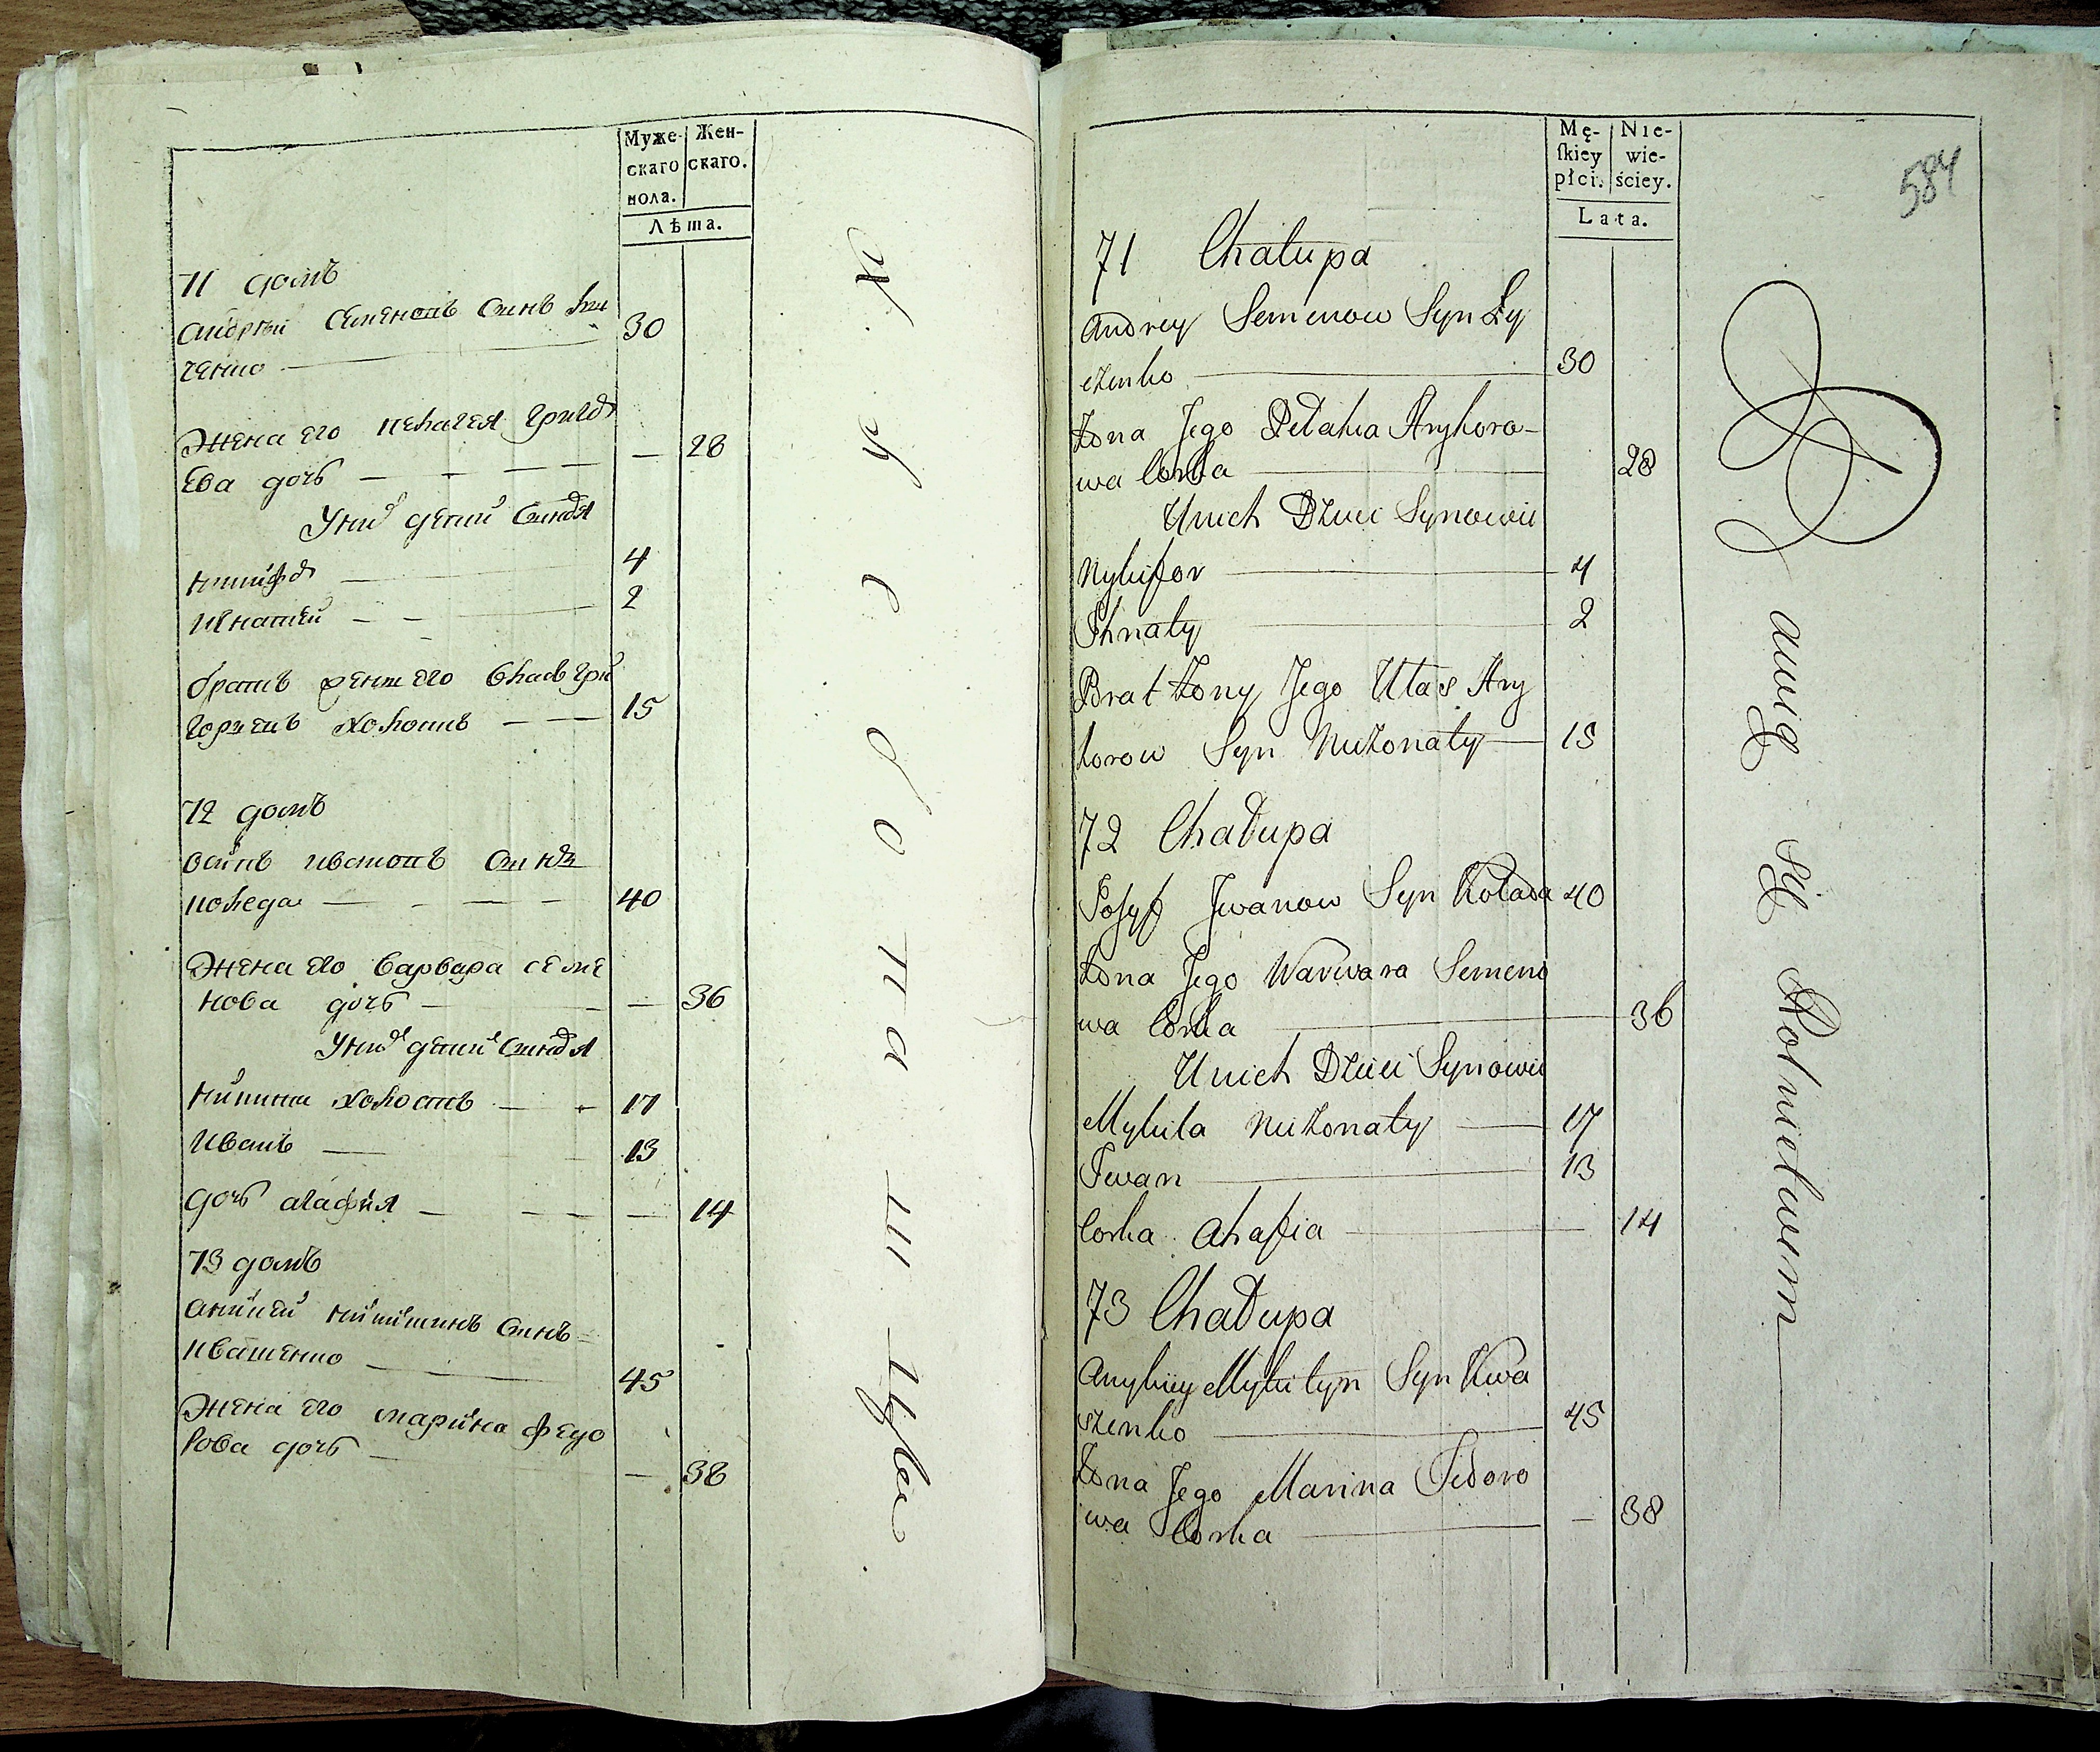 Муже-
скаго
пола.
Жен-
скаго.
Лѣта.
71 домъ
андрѣй Семеновъ Синъ Ли
ченко 30
Жена его пелагея григо
Ева дочь 28
У них детей Синовя
никифор 4
Игнатей 2
братъ жени его Власъ гри
горьевъ холостъ 15
72 домъ
осипъ ивановъ Синъ
коледа 40
Жена его варвара семе
нова дочь 36
У них детей Синовя
никита холостъ 17
Иванъ 13
дочь агафия 14
73 домъ
аникей никитинъ Синъ
ивашенко 45
Жена его марина федо
рова дочь 38
Mę-
ſkiey
płci.
Nie-
wie-
ściey.
Lata.
584
71 Chałupa
Andrey Semenow Syn Ły
czenko 30
Żona Jego Pelahia Hryhoro-
wa Corka 28
U nich Dzieci Synowie
Nykifor 4
Ihnaty 2
Brat Żony Jego Ułas Hry
horow Syn Nieżonaty 15
72 Chałupa
Josyf Iwanow Syn Kolada 40
Żona Jego Warwara Semeno
wa Corka 36
U nich Dzieci Synowie
Mykita Nieżonaty 17
Iwan 13
Corka Ahafia 14
73 Chałupa
Anykiiy Mykityn Syn Kwa
szenko 45
Żona Jego Marina Fedoro
wa Corka 38
awią się Rolnictwem